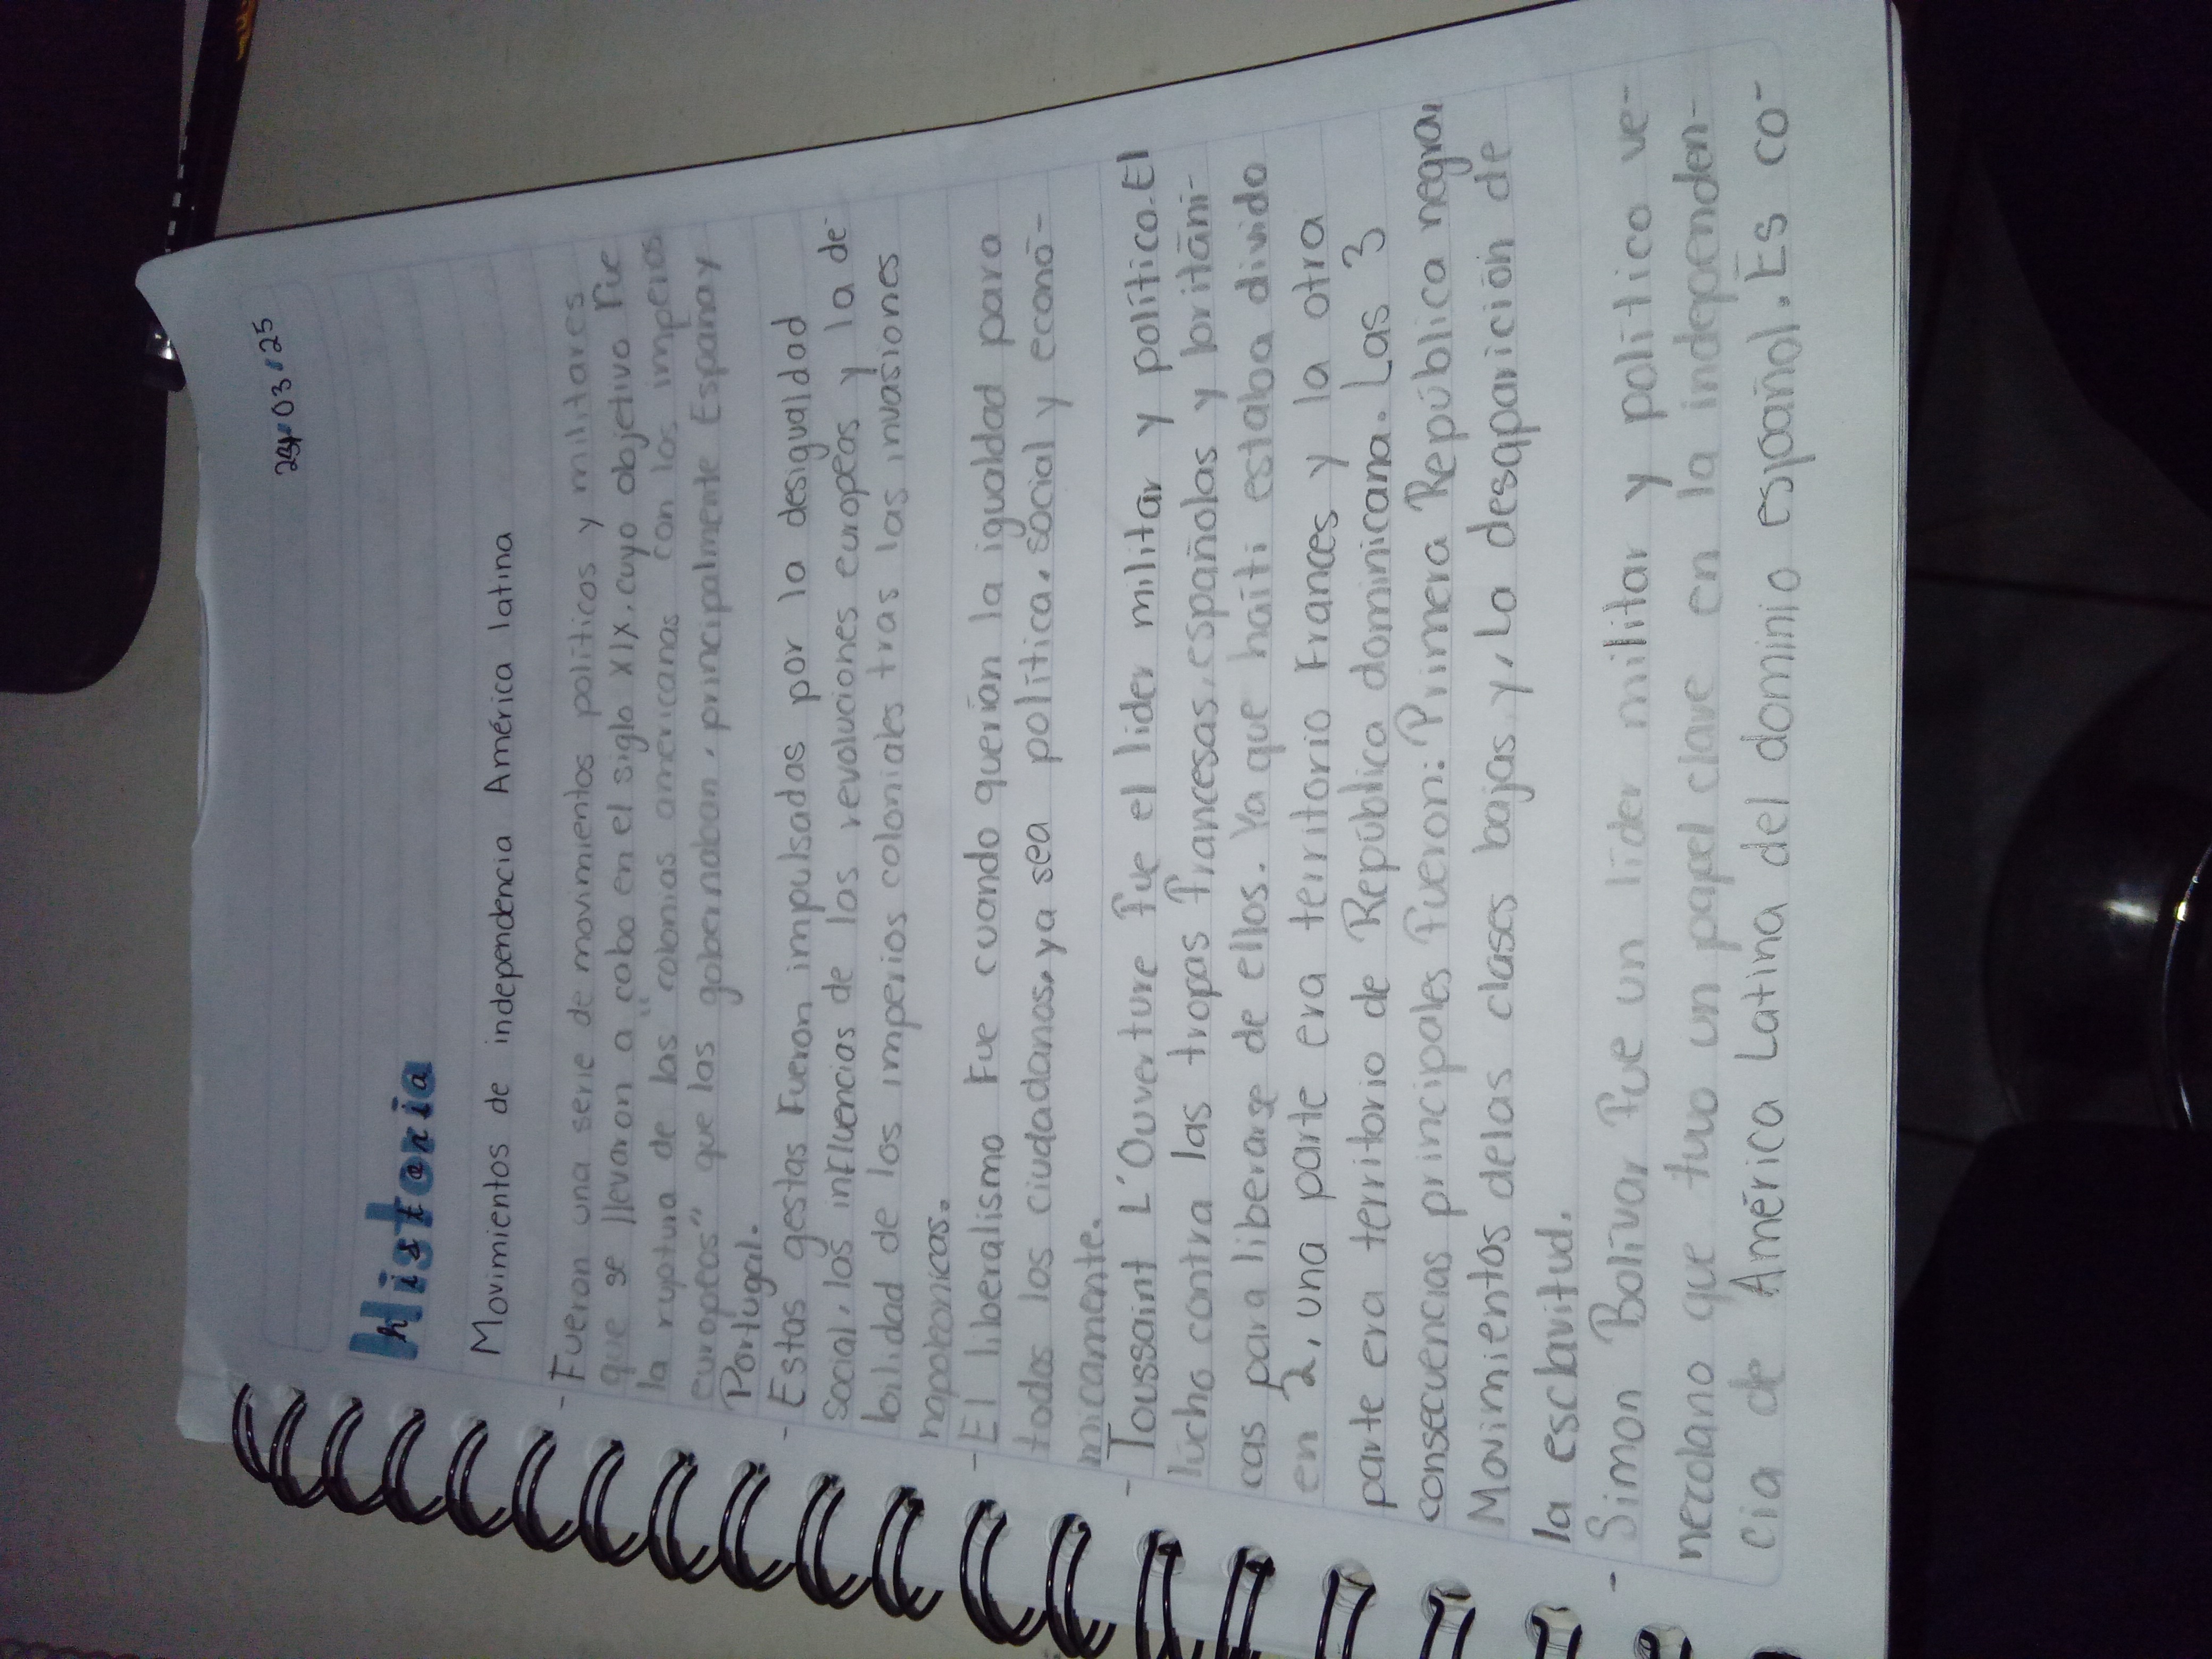 24/03/25
Historia
Movimientos de independencia América latina
- Fueron una serie de movimientos políticos y militares
que se llevaron a cabo en el siglo XIX, cuyo objetivo fue
la ruptura de las "colonias americanas con los imperios
europeos" que las gobernaban, principalmente España y
Portugal.
- Estas gestas Fueron impulsadas por la desigualdad
social, las influencias de las revoluciones europeas y la de-
bilidad de los imperios coloniales tras las invasiones
napoleonicas.
- El liberalismo Fue cuando querían la igualdad para
todos los ciudadanos, ya sea política, social y econó-
micamente.
- Toussaint L'Ouverture fue el lider militar y político. El
lucho contra las tropas francesas, españolas y británi-
cas para liberarse de ellos. Ya que haiti estaba divido
en 2, una parte era territorio Frances y la otra
parte era territorio de República dominicana. Las 3
consecuencias principales fueron: Primera República negra
Movimientos delas clases bajas y, La desaparición de
la esclavitud.
- Simon Bolívar fue un líder militar y político ve-
nezolano que tuvo un papel clave en la independen-
cia de América Latina del dominio español. Es co-